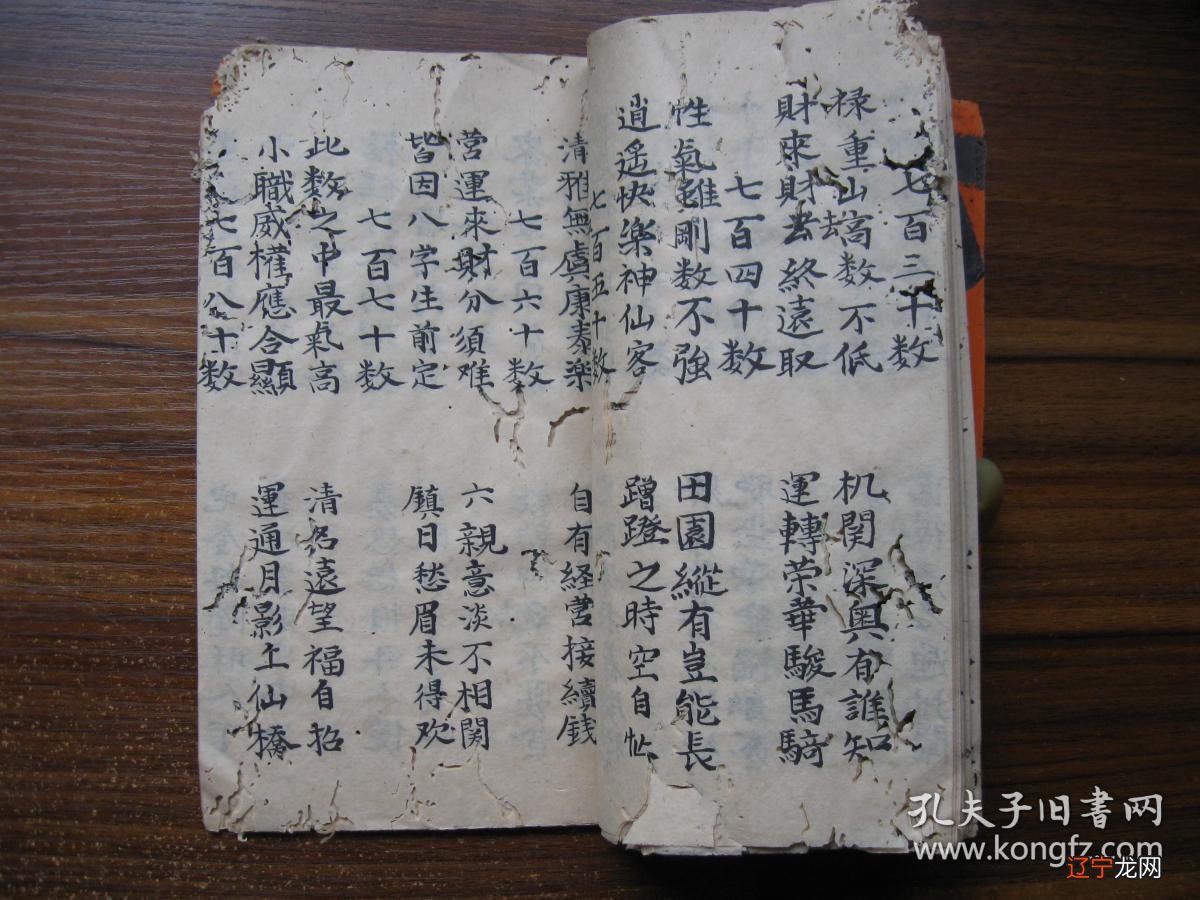 七百三十数
禄重山高数不低 机関深奥有誰知
財來財去終遠取 運轉荣華駿馬騎
七百四十数
性氣雖剛数不強 田園縱有豈能長
逍遙快樂神仙客 蹭蹬之時空自忙
七百五十数
清雅無虞康泰樂 自有経营接續钱
七百六十数
营運來財分须难 六親意淡不相関
皆因八字生前定 鎮日愁眉未得欢
七百七十数
此数之中最氣高 清名遠望福自招
小職威權應合顯 運通月影上仙橋
七百八十数
孔夫子旧書网
www.kongfz.com
辽宁龙网